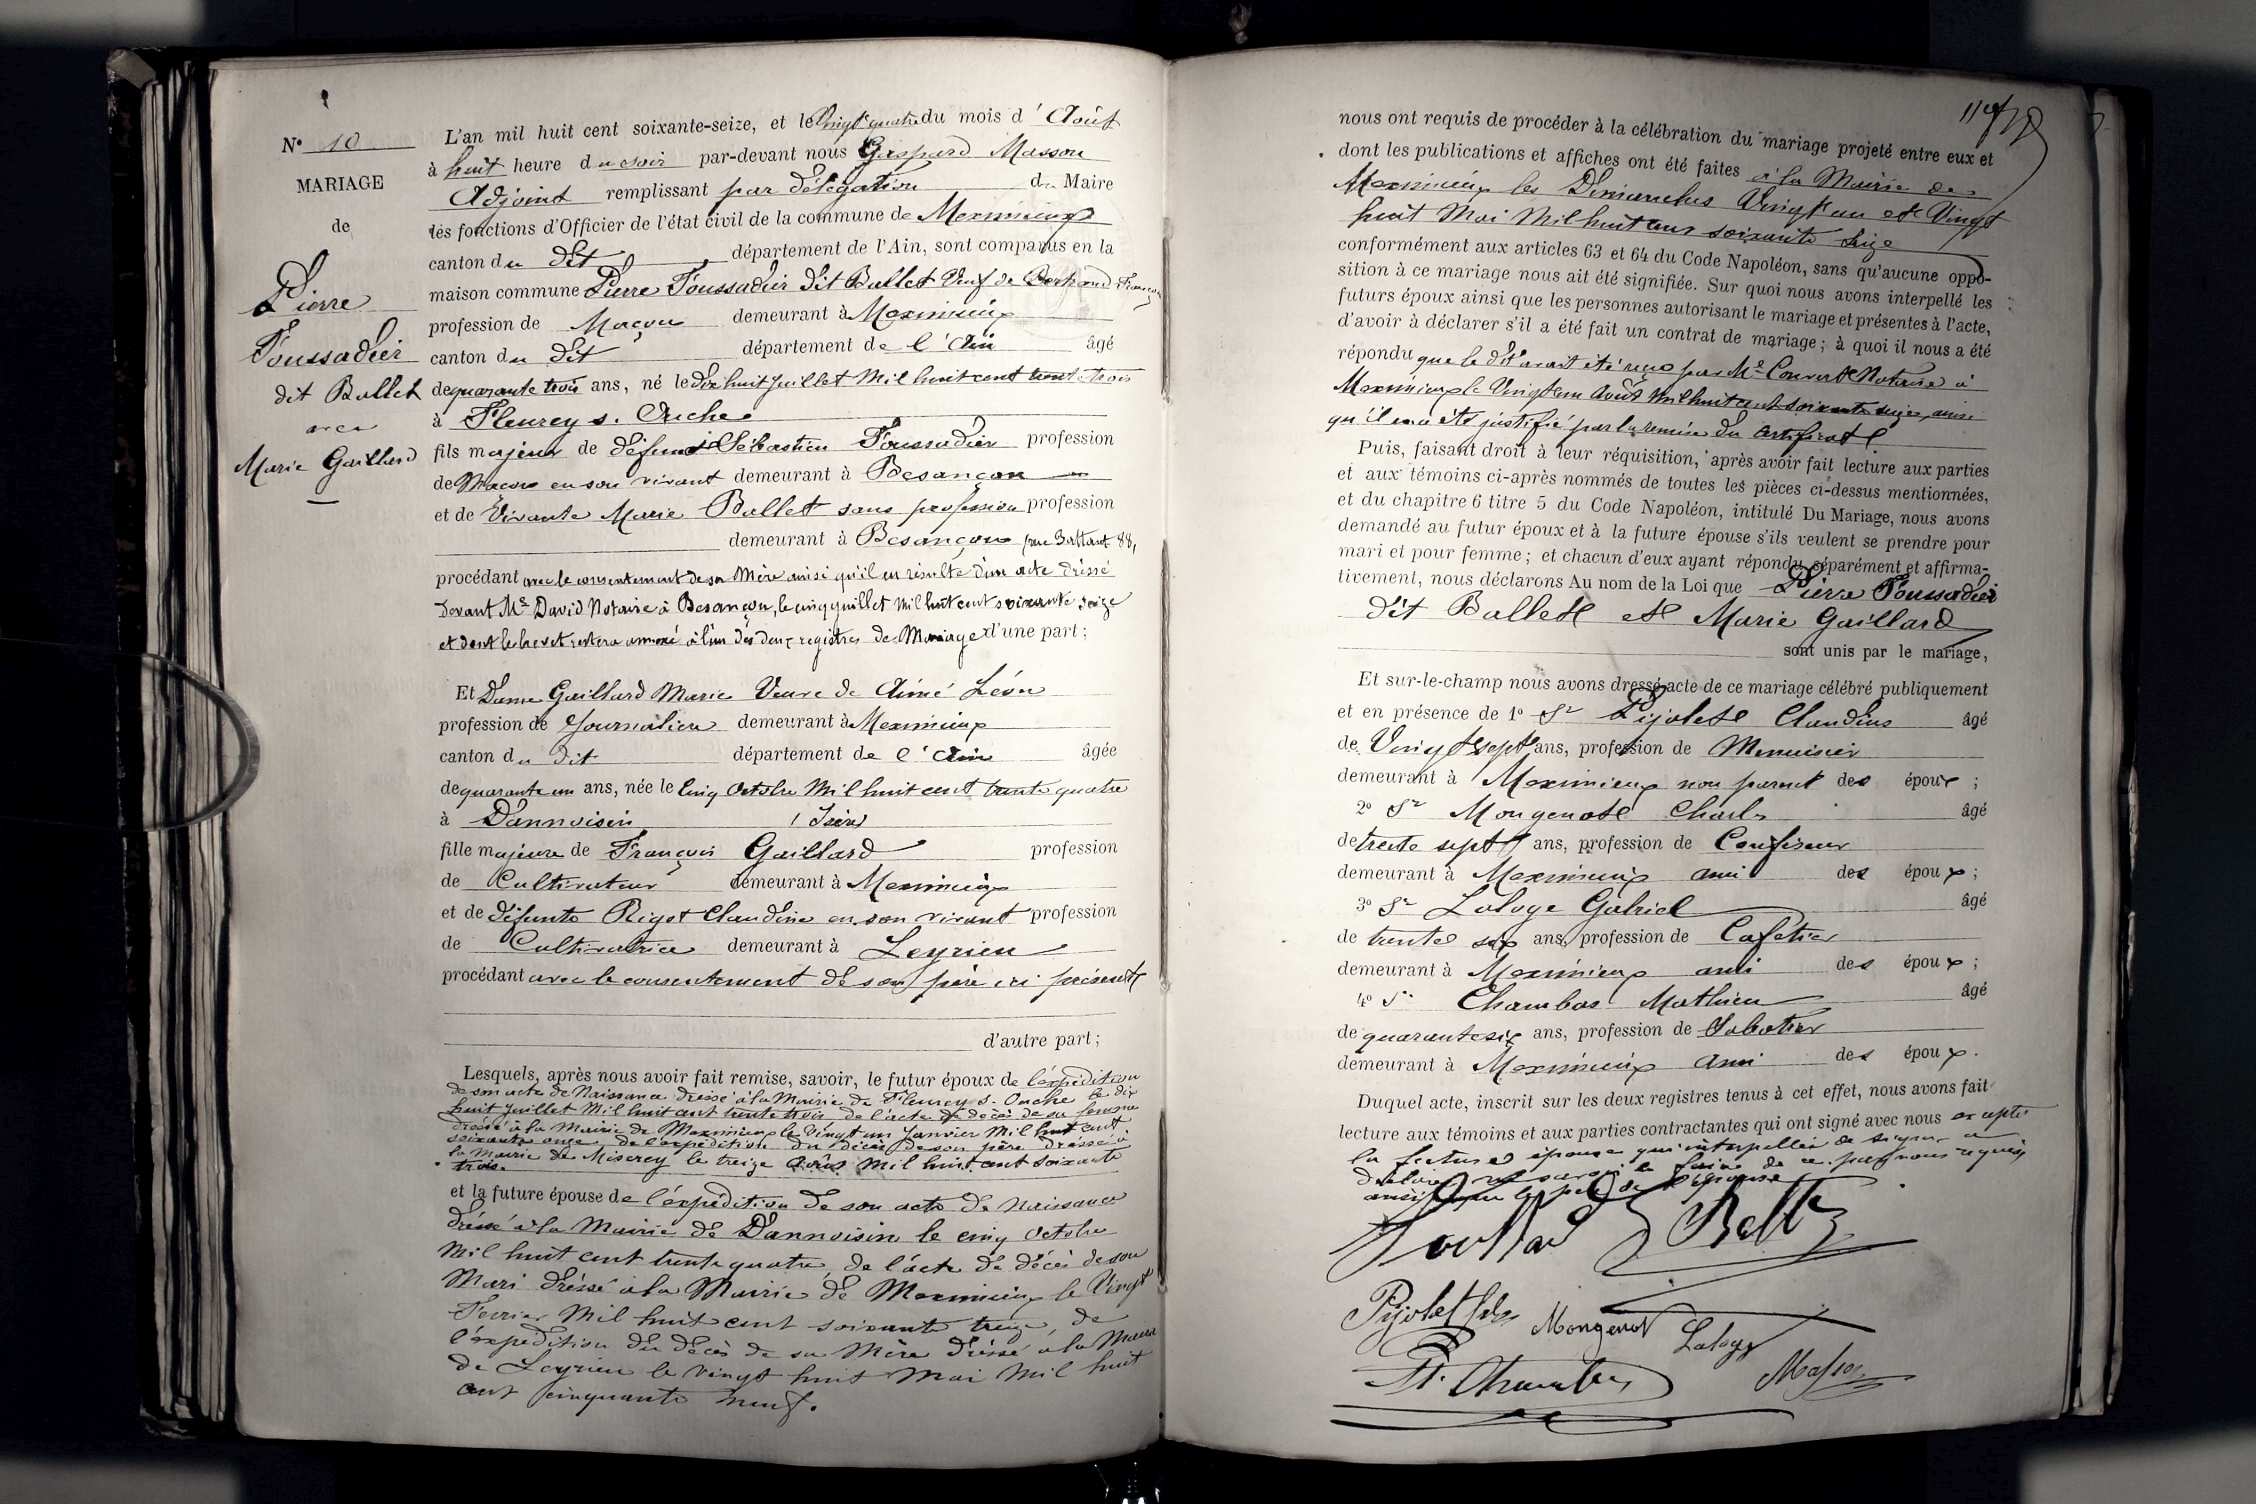 N° 10
MARIAGE
de
Pierre
Foussadier
dit Ballet
avec
Marie Gaillard
L'an mil huit cent soixante-seize, et le Vingt quatre du mois d'Août
à huit heure du soir par-devant nous Gaspard Masson
Adjoint remplissant par délégation du Maire
les fonctions d'Officier de l'état civil de la commune de Meximieux
canton du dit département de l'Ain, sont comparus en la
maison commune Pierre Foussadier dit Ballet Veuf de Bertrand Françoise
profession de Maçon demeurant à Meximieux
canton du dit département de l'Ain âgé
de quarante trois ans, né le Dix huit Juillet Mil huit cent trente trois
à Fleurey s. Ouche
fils majeur de défunt Sébastien Foussadier profession
de Maçon en son vivant demeurant à Besançon
et de Vivante Marie Ballet sans profession profession
demeurant à Besançon rue Battant 88,
procédant avec le consentement de sa Mère ainsi qu'il en résulte d'un acte dressé
devant Me David Notaire à Besançon, le cinq juillet Mil huit cent soixante seize
et dont le brevet restera annexé à l'un des deux registres de Mariage d'une part;
Et Dame Gaillard Marie Veuve de Aimé Léon
profession de Journalière demeurant à Meximieux
canton du dit département de l'Ain âgée
de quarante un ans, née le Cinq Octobre Mil huit cent trente quatre
à Dannoisin (Isère)
fille majeure de François Gaillard profession
de Cultivateur demeurant à Meximieux
et de défunte Rigot Claudine en son vivant profession
de Cultivatrice demeurant à Leyrieu
procédant avec le consentement de son père ici présent
d'autre part;
Lesquels, après nous avoir fait remise, savoir, le futur époux de l'expédition
de son acte de Naissance dressé à la Mairie de Fleurey s. Ouche le dix
huit Juillet Mil huit cent trente trois de l'acte de décès de sa femme
dressé à la Mairie de Meximieux le Vingt un Janvier Mil huit cent
soixante onze, de l'expédition du décès de son père dressé à
la Mairie de Miserey le treize Août Mil huit cent soixante
trois.
et la future épouse de l'expédition de son acte de Naissance
dressé à la Mairie de Dannoisin le cinq Octobre
Mil huit cent trente quatre, de l'acte de décès de son
Mari dressé à la Mairie de Meximieux le Vingt
Fevrier Mil huit cent soixante treize, de
l'expédition du décès de sa Mère dressé à la Mairie
de Leyrieu le vingt huit Mai Mil huit
cent cinquante neuf.
nous ont requis de procéder à la célébration du mariage projeté entre eux et
dont les publications et affiches ont été faites à la Mairie de
Meximieux les Dimanches Vingt un et Vingt
huit Mai Mil huit cent soixante seize
conformément aux articles 63 et 64 du Code Napoléon, sans qu'aucune oppo-
sition à ce mariage nous ait été signifiée. Sur quoi nous avons interpellé les
futurs époux ainsi que les personnes autorisant le mariage et présentes à l'acte,
d'avoir à déclarer s'il a été fait un contrat de mariage; à quoi il nous a été
répondu que le dit avait été reçu par Me Convert Notaire à
Meximieux le Vingt un Août Mil huit cent soixante seize, ainsi
qu'il en a été justifié par la remise du certificat
Puis, faisant droit à leur réquisition, après avoir fait lecture aux parties
et aux témoins ci-après nommés de toutes les pièces ci-dessus mentionnées,
et du chapitre 6 titre 5 du Code Napoléon, intitulé Du Mariage, nous avons
demandé au futur époux et à la future épouse s'ils veulent se prendre pour
mari et pour femme; et chacun d'eux ayant répondu séparément et affirma-
tivement, nous déclarons Au nom de la Loi que Pierre Foussadier
dit Ballet et Marie Gaillard
sont unis par le mariage,
Et sur-le-champ nous avons dressé acte de ce mariage célébré publiquement
et en présence de 1° Sr Pijolet Claudius âgé
de Vingt sept ans, profession de Menuisier
demeurant à Meximieux non parent des époux;
2° Sr Mongenot Charles âgé
de trente sept ans, profession de Confiseur
demeurant à Meximieux ami des époux;
3° Sr Laloge Gabriel âgé
de trente six ans, profession de Cafetier
demeurant à Meximieux ami des époux;
4° Sr Chambas Mathieu âgé
de quarante six ans, profession de Sabotier
demeurant à Meximieux Ami des époux.
Duquel acte, inscrit sur les deux registres tenus à cet effet, nous avons fait
lecture aux témoins et aux parties contractantes qui ont signé avec nous excepté
la future épouse qui interpellée de signer a
déclaré ne savoir le faire de ce par nous requis
ainsi que le père de l'épouse
Pijolet fils Mongenot Laloge
Masson